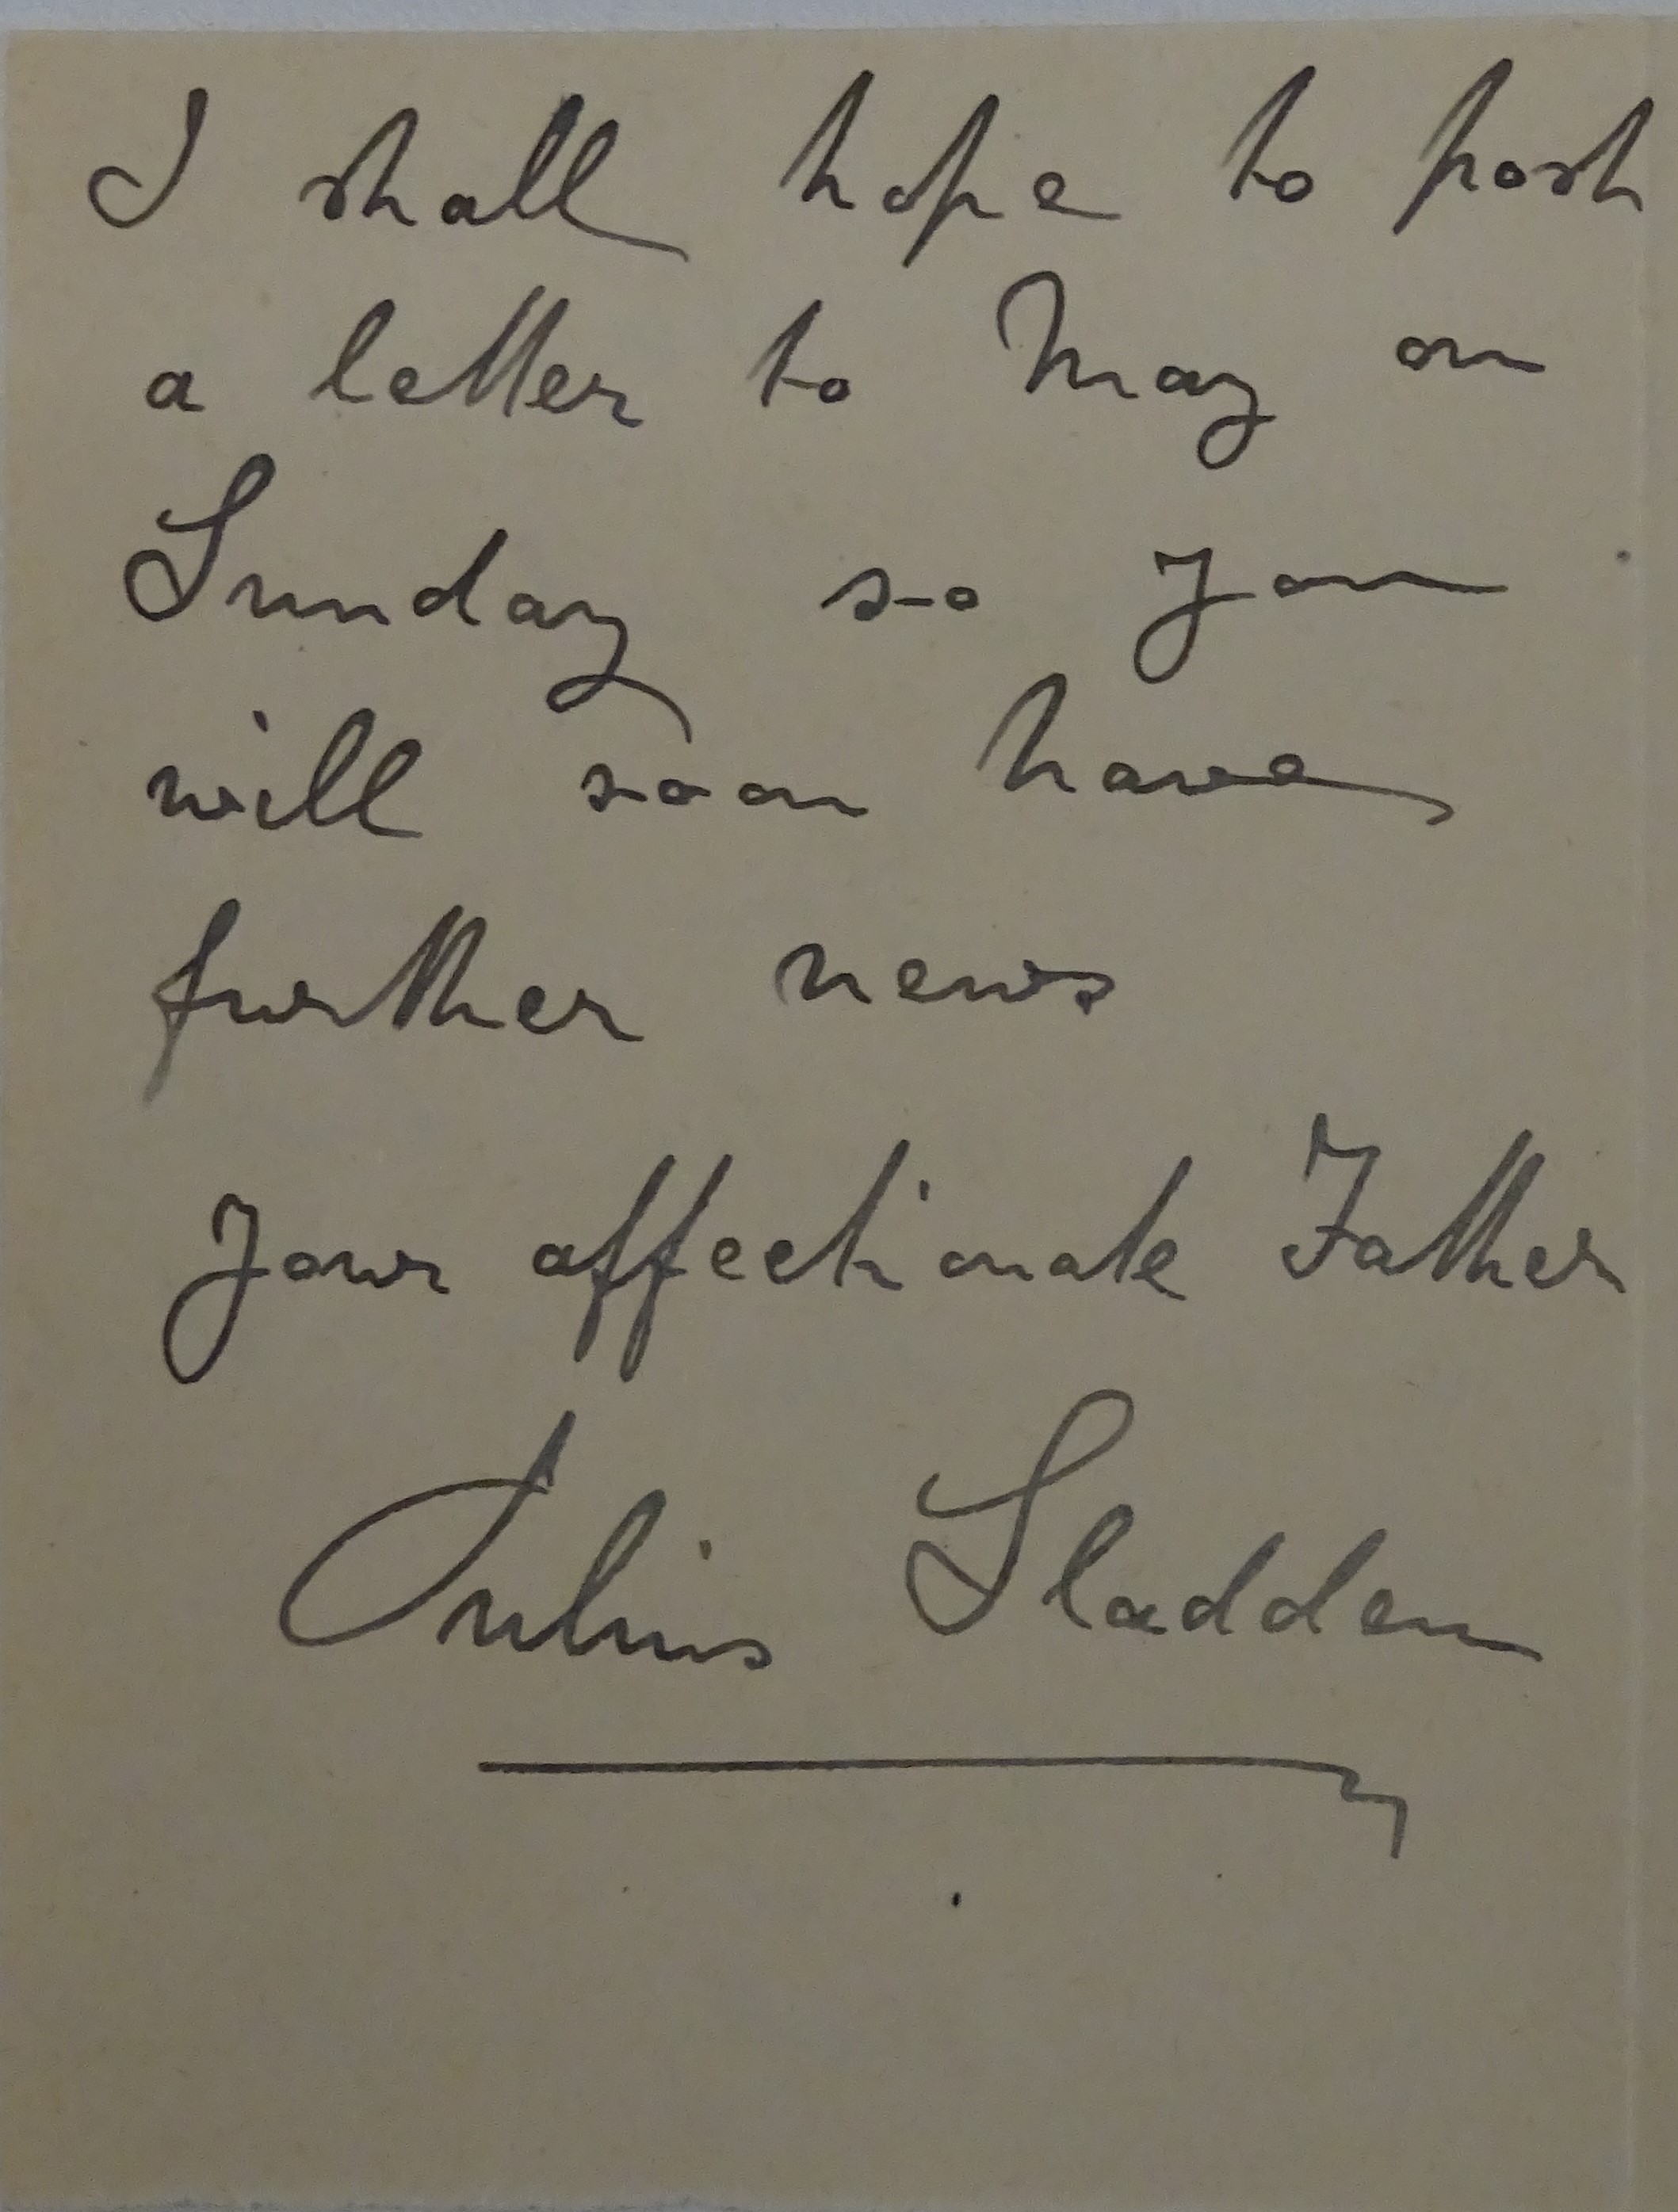 I shall hope to post
a letter to May on
Sunday so you
will soon have
further news
Your affectionate Father
Julius Sladden